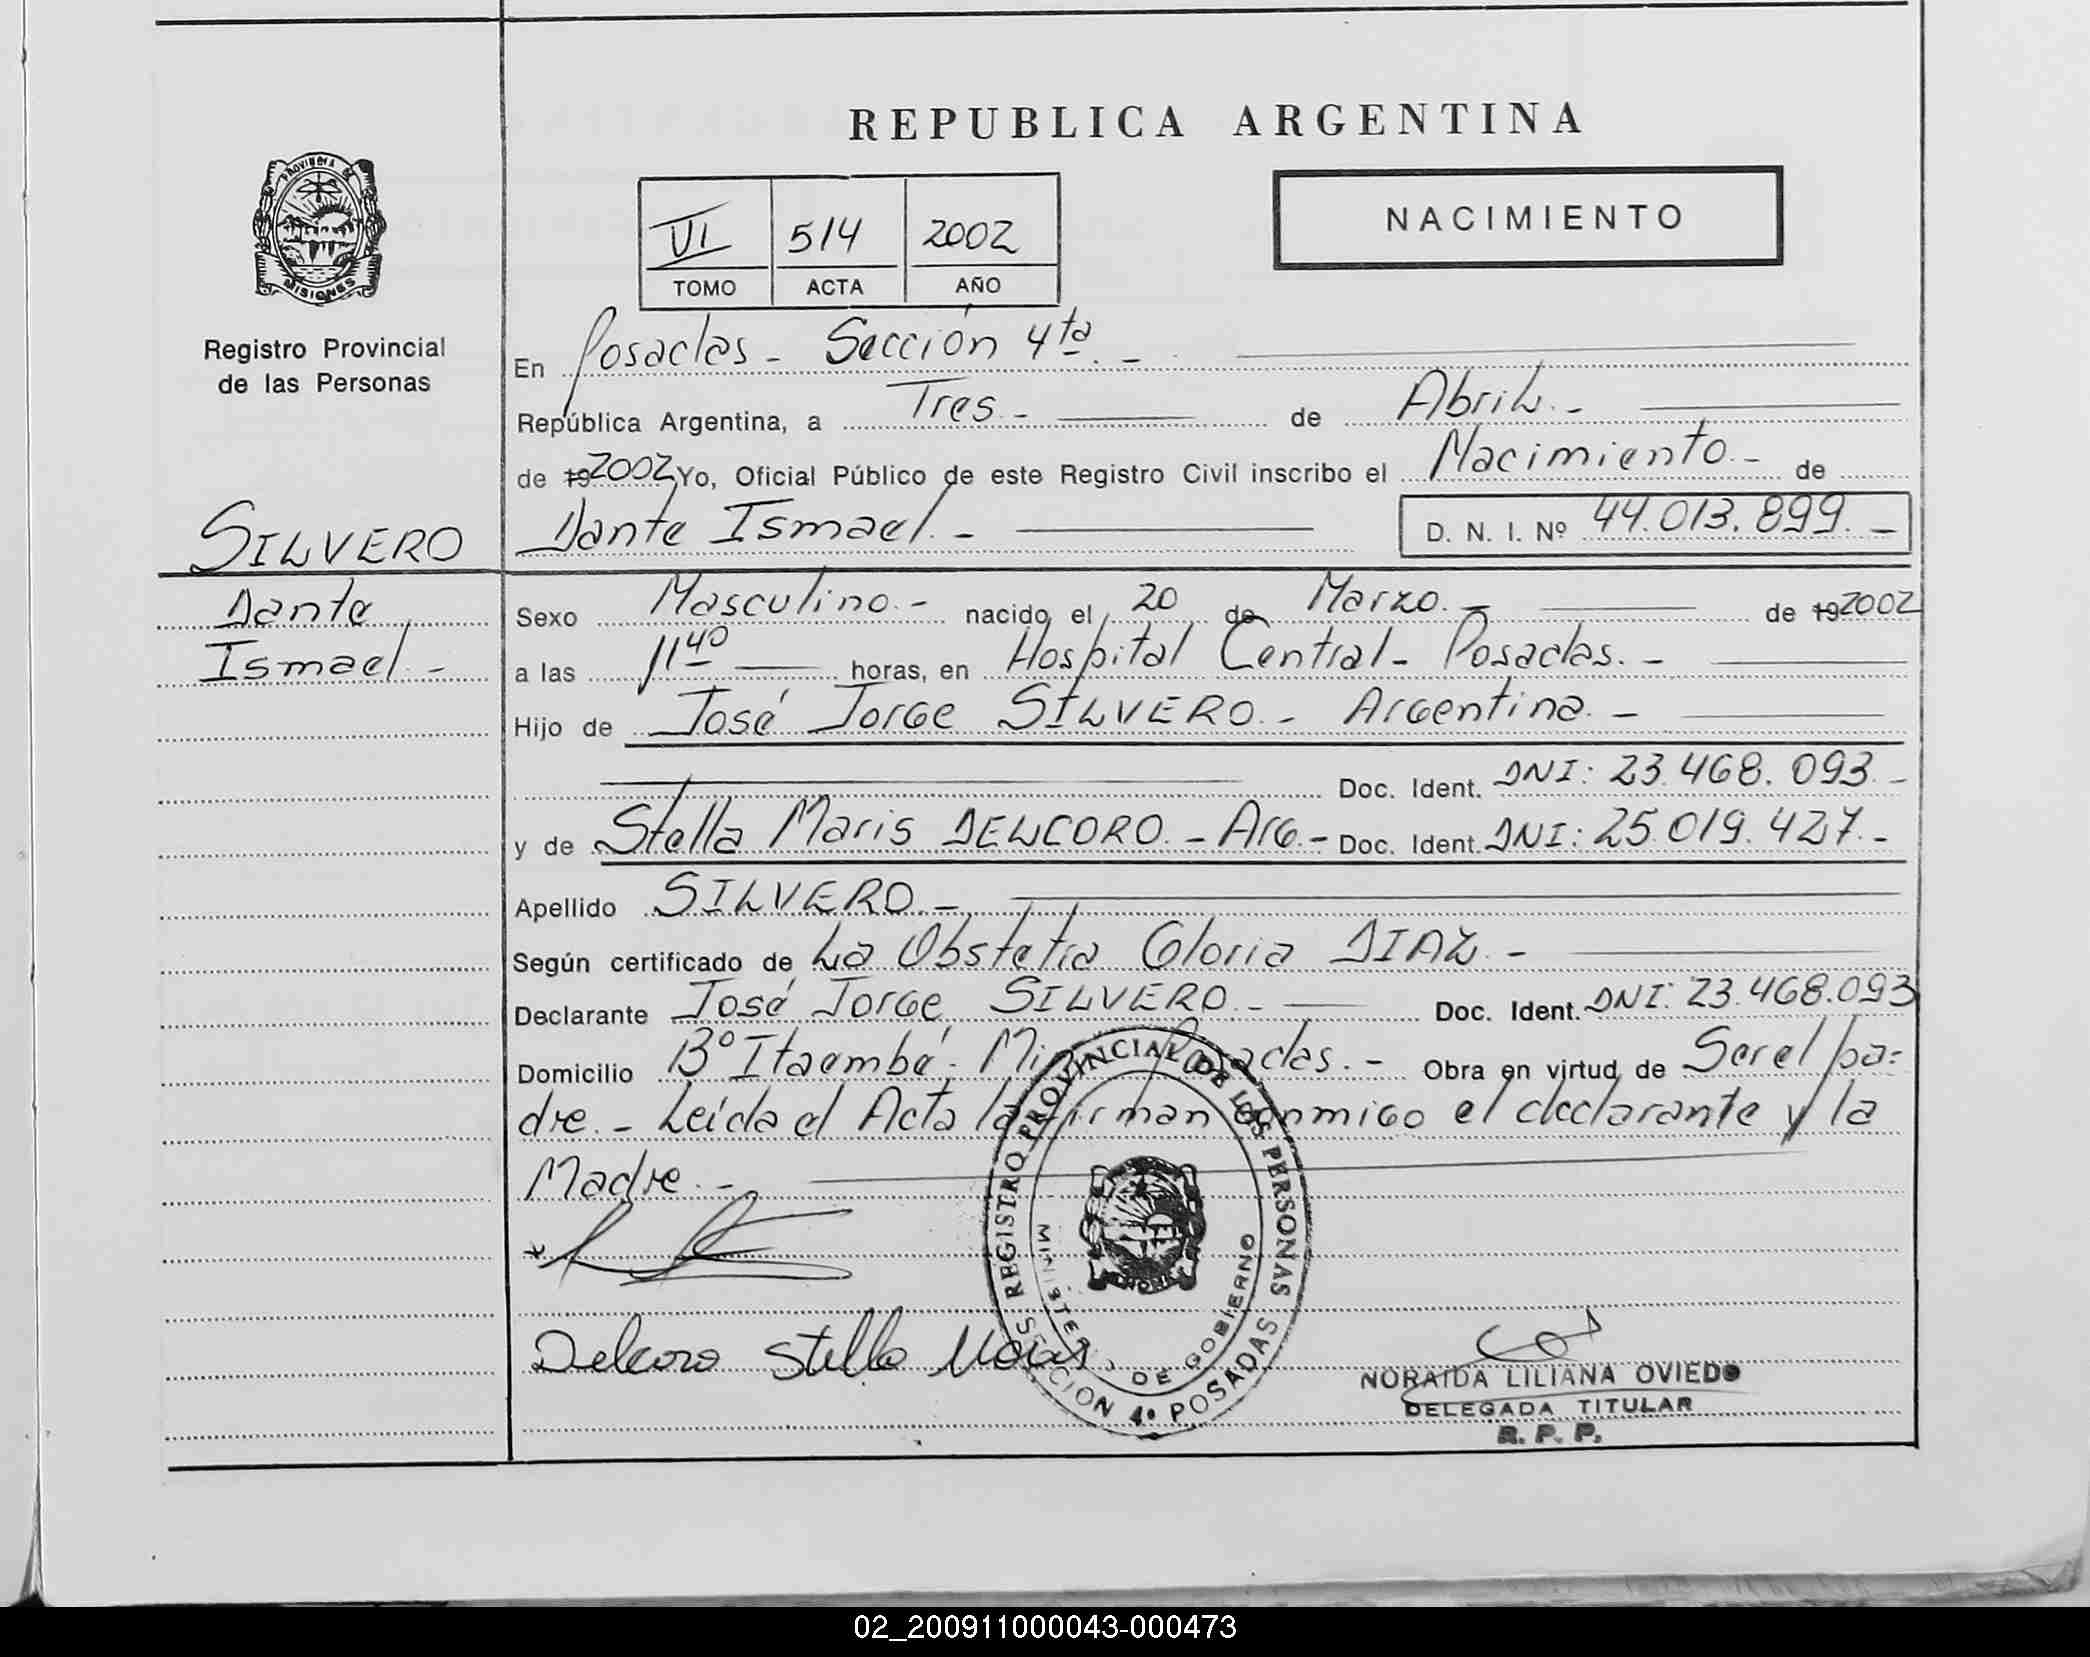 REPUBLICA ARGENTINA
PROVINCIA DE
MISIONES
Registro Provincial
de las Personas
VI 514 2002
TOMO ACTA AÑO
NACIMIENTO
En Posadas - Sección 4ta. -
República Argentina, a Tres. - de Abril. -
de 19 2002 Yo, Oficial Público de este Registro Civil inscribo el Nacimiento. - de
SILVERO Dante Ismael. - D. N. I. Nº 44.013.899. -
Dante
Ismael. -
Sexo Masculino. - nacido el 20 de Marzo. - de 19 2002
a las 11 40 horas, en Hospital Central - Posadas. -
Hijo de José Jorge SILVERO. - Argentina. -
Doc. Ident. DNI: 23.468.093. -
y de Stella Maris DELCORO. - Arg. - Doc. Ident. DNI: 25.019.427. -
Apellido SILVERO. -
Según certificado de La Obstetra Gloria DIAZ. -
Declarante José Jorge SILVERO. - Doc. Ident. DNI: 23.468.093
Domicilio Bº Itaembé - Posadas. - Obra en virtud de Ser el pa-
dre. - Leída el Acta la firman conmigo el declarante y la
Madre. -
Delcoro Stella Maris.
REGISTRO PROVINCIAL DE LOS PERSONAS
SECCION 4º POSADAS
MINISTERIO DE GOBIERNO
NORAIDA LILIANA OVIEDO
DELEGADA TITULAR
R. P. P.
02_200911000043-000473